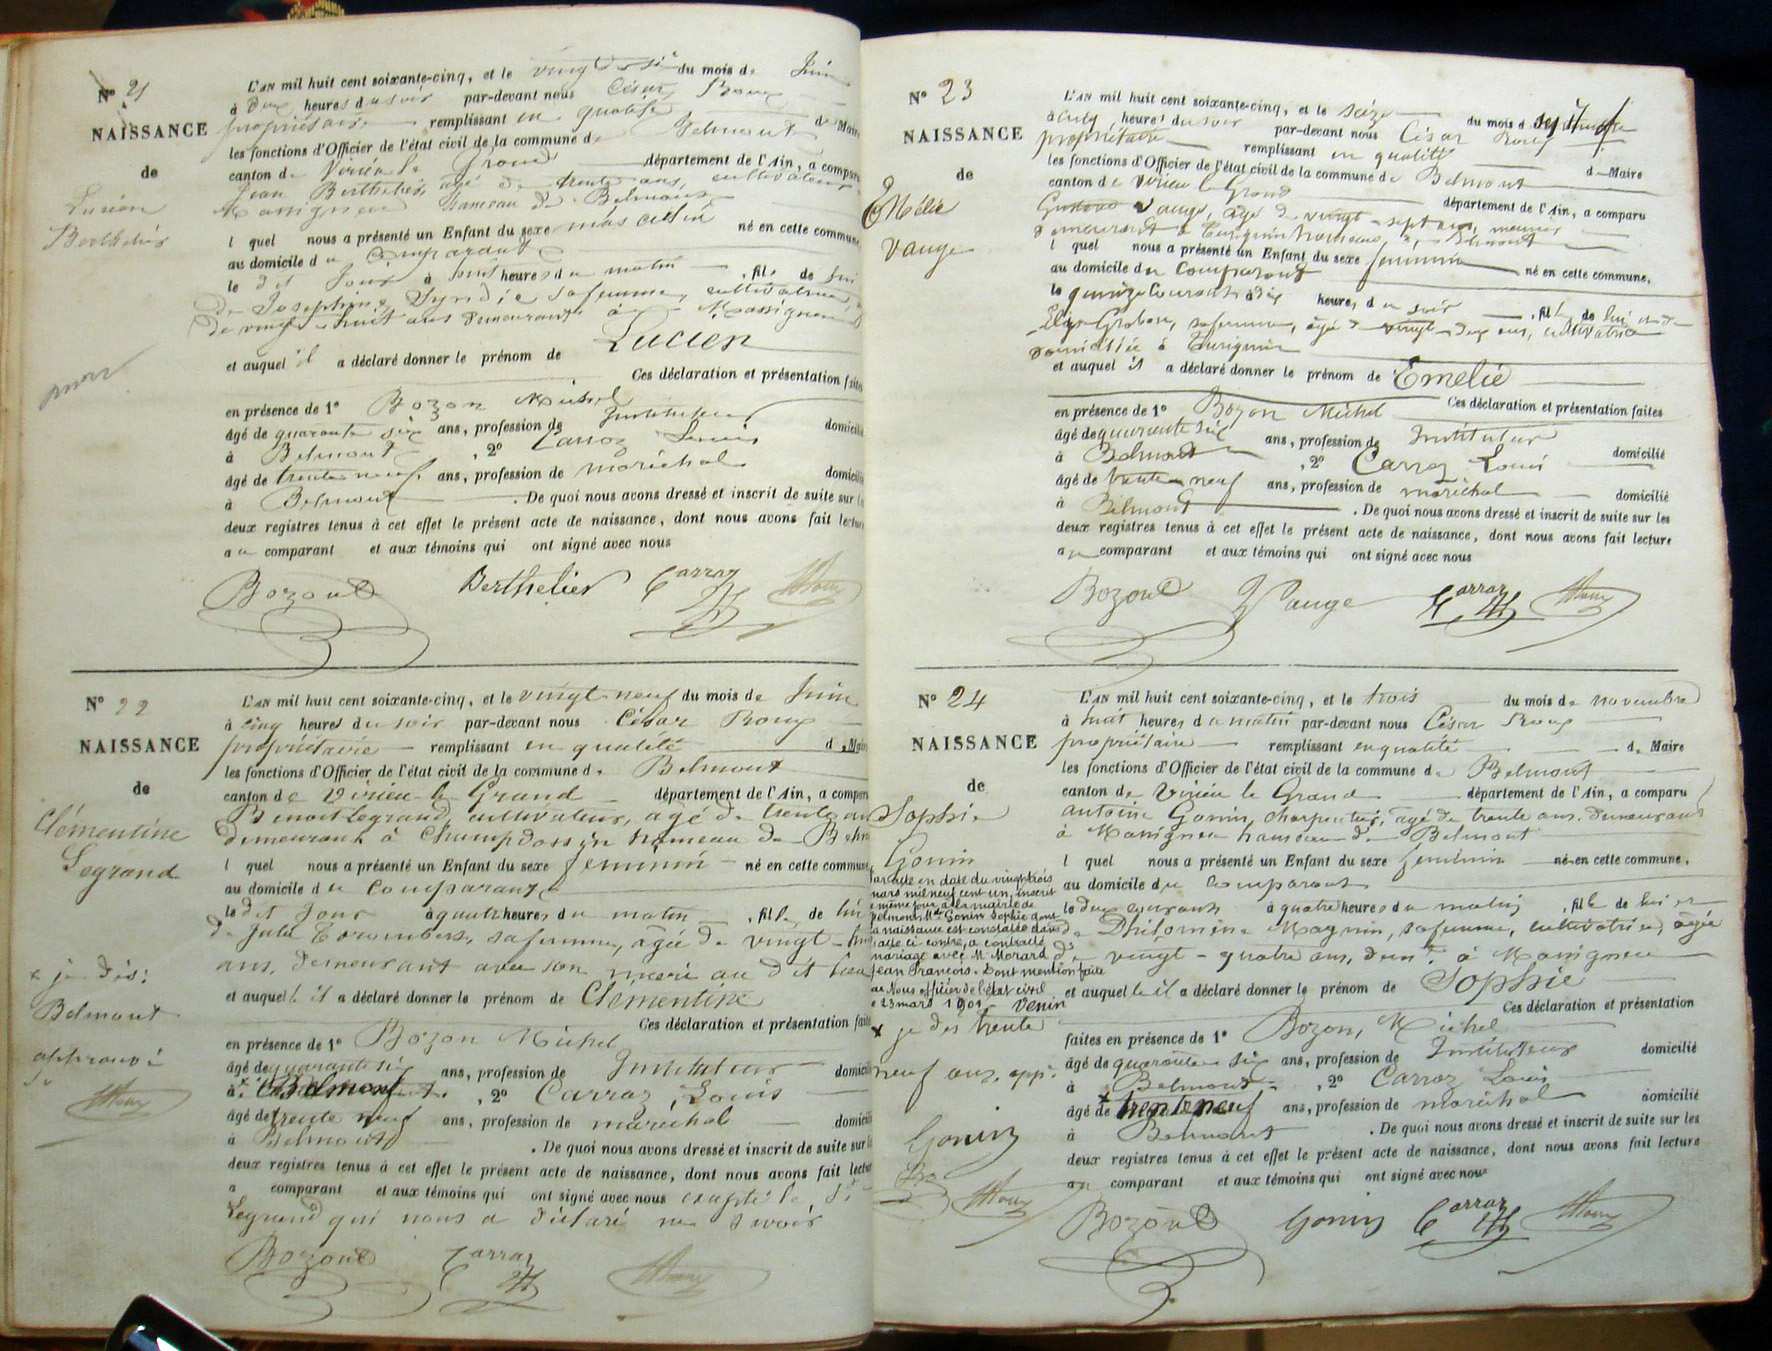 N° 21
NAISSANCE
de
Lucien
Berthelier
L'AN mil huit cent soixante-cinq, et le vingt du mois de Juin
à deux heures du soir par-devant nous César Roux
propriétaire remplissant en qualité de Maire
les fonctions d'Officier de l'état civil de la commune de Belmont
canton de Virieu le Grand département de l'Ain, a comparu
Jean Berthelier, âgé de trente ans, cultivateur
Massignieu hameau de Belmont
lequel nous a présenté un Enfant du sexe masculin né en cette commune
au domicile du comparant
le dit jour à heures du matin, fils de lui
de Josephine sa femme, cultivatrice
de vingt-huit ans demeurant à Massignieu
et auquel il a déclaré donner le prénom de Lucien
Ces déclaration et présentation faites
en présence de 1° Bozon Michel
âgé de quarante six ans, profession de Instituteur domicilié
à Belmont, 2° Carraz Louis
âgé de trente neuf ans, profession de maréchal domicilié
à Belmont. De quoi nous avons dressé et inscrit de suite sur les
deux registres tenus à cet effet le présent acte de naissance, dont nous avons fait lecture
au comparant et aux témoins qui ont signé avec nous
Bozon Berthelier Carraz Roux
N° 22
NAISSANCE
de
Clémentine
Legrand
x je dis:
Belmont
approuvé
L'AN mil huit cent soixante-cinq, et le vingt-neuf du mois de Juin
à cinq heures du soir par-devant nous César Roux
propriétaire remplissant en qualité de Maire
les fonctions d'Officier de l'état civil de la commune de Belmont
canton de Virieu le Grand département de l'Ain, a comparu
Benoit Legrand, cultivateur, âgé de trente ans
demeurant à Champdossin hameau de Belmont
lequel nous a présenté un Enfant du sexe féminin né en cette commune
au domicile du comparant
le dit jour à quatre heures du matin, fille de lui
de Julie sa femme, âgée de vingt-huit
ans, demeurant avec son mari au dit lieu
et auquel il a déclaré donner le prénom de Clémentine
Ces déclaration et présentation faites
en présence de 1° Bozon Michel
âgé de quarante six ans, profession de Instituteur domicilié
à x Belmont, 2° Carraz, Louis
âgé de trente neuf ans, profession de maréchal domicilié
à Belmont. De quoi nous avons dressé et inscrit de suite sur les
deux registres tenus à cet effet le présent acte de naissance, dont nous avons fait lecture
a comparant et aux témoins qui ont signé avec nous excepté le dit
Legrand qui nous a déclaré ne savoir
Bozon Carraz Roux
N° 23
NAISSANCE
de
Emélie
Vauge
L'AN mil huit cent soixante-cinq, et le seize du mois de septembre
à cinq heures du soir par-devant nous César Roux
propriétaire remplissant en qualité de Maire
les fonctions d'Officier de l'état civil de la commune de Belmont
canton de Virieu le Grand département de l'Ain, a comparu
Gustave Vauge, âgé de vingt-sept ans, meunier
demeurant à hameau de Belmont
lequel nous a présenté un Enfant du sexe féminin né en cette commune,
au domicile du comparant
le quinze courant à dix heures du soir, fille de lui et de
Grobon, sa femme, âgée de vingt-deux ans, cultivatrice
domiciliée à
et auquel il a déclaré donner le prénom de Emelie
Ces déclaration et présentation faites
en présence de 1° Bozon Michel
âgé de quarante six ans, profession de Instituteur domicilié
à Belmont, 2° Carraz Louis
âgé de trente neuf ans, profession de maréchal domicilié
à Belmont. De quoi nous avons dressé et inscrit de suite sur les
deux registres tenus à cet effet le présent acte de naissance, dont nous avons fait lecture
au comparant et aux témoins qui ont signé avec nous
Bozon Vauge Carraz Roux
N° 24
NAISSANCE
de
Sophie
Gonin
Par acte en date du vingt-trois
mars mil neuf cent un, inscrit
le même jour à la mairie de
Belmont, Mlle Gonin Sophie dont
la naissance est constatée dans
l'acte ci contre, a contracté
mariage avec M Morard
Jean François. Dont mention faite
par Nous officier de l'état civil
le 23 mars 1901. Venin
x je dis trente
neuf ans. app.
Gonin
Bo
Roux
L'AN mil huit cent soixante-cinq, et le trois du mois de novembre
à huit heures du matin par-devant nous César Roux
propriétaire remplissant en qualité de Maire
les fonctions d'Officier de l'état civil de la commune de Belmont
canton de Virieu le Grand département de l'Ain, a comparu
antoine Gonin, charpentier, âgé de trente ans demeurant
à Massignieu hameau de Belmont
lequel nous a présenté un Enfant du sexe féminin né en cette commune,
au domicile du comparant
le deux courant à quatre heures du matin, fille de lui et
de Philomène Magnin, sa femme, cultivatrice, âgée
de vingt-quatre ans, dem.t à Massignieu
et auquel il a déclaré donner le prénom de Sophie
Ces déclaration et présentation
faites en présence de 1° Bozon, Michel
âgé de quarante six ans, profession de Instituteur domicilié
à Belmont, 2° Carraz Louis
âgé de x trente neuf ans, profession de maréchal domicilié
à Belmont. De quoi nous avons dressé et inscrit de suite sur les
deux registres tenus à cet effet le présent acte de naissance, dont nous avons fait lecture
au comparant et aux témoins qui ont signé avec nous
Bozon Gonin Carraz Roux